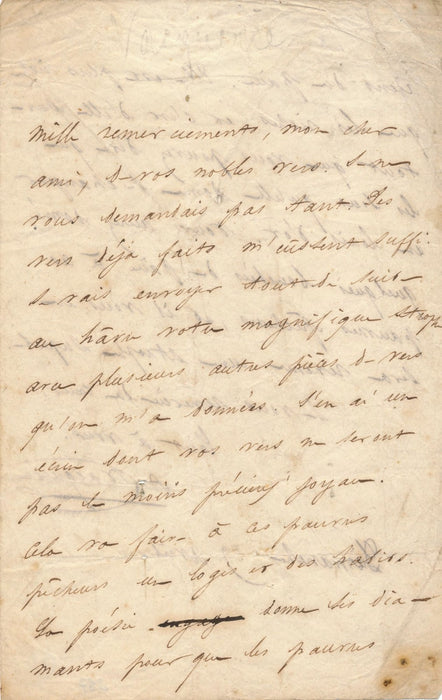 mille remerciements, mon cher
ami de vos nobles vers. Je ne
vous demandais pas tant. Les
vers déjà faits m'eussent suffi.
Je vais envoyer tout de suite
au hâvre votre magnifique strophe
avec plusieurs autres pièces de vers
qu'on m'a données. J'en ai un
écrin dont vos vers ne seront
pas le moins précieux joyau.
Cela va faire à ces pauvres
pêcheurs un logis et des habits.
La poésie donne ses dia-
mants pour que les pauvres